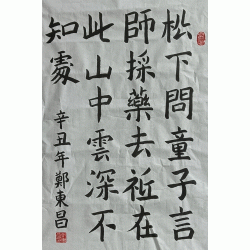 松下問童子言
師採藥去祗在
此山中雲深不
知處
辛丑年鄭東昌